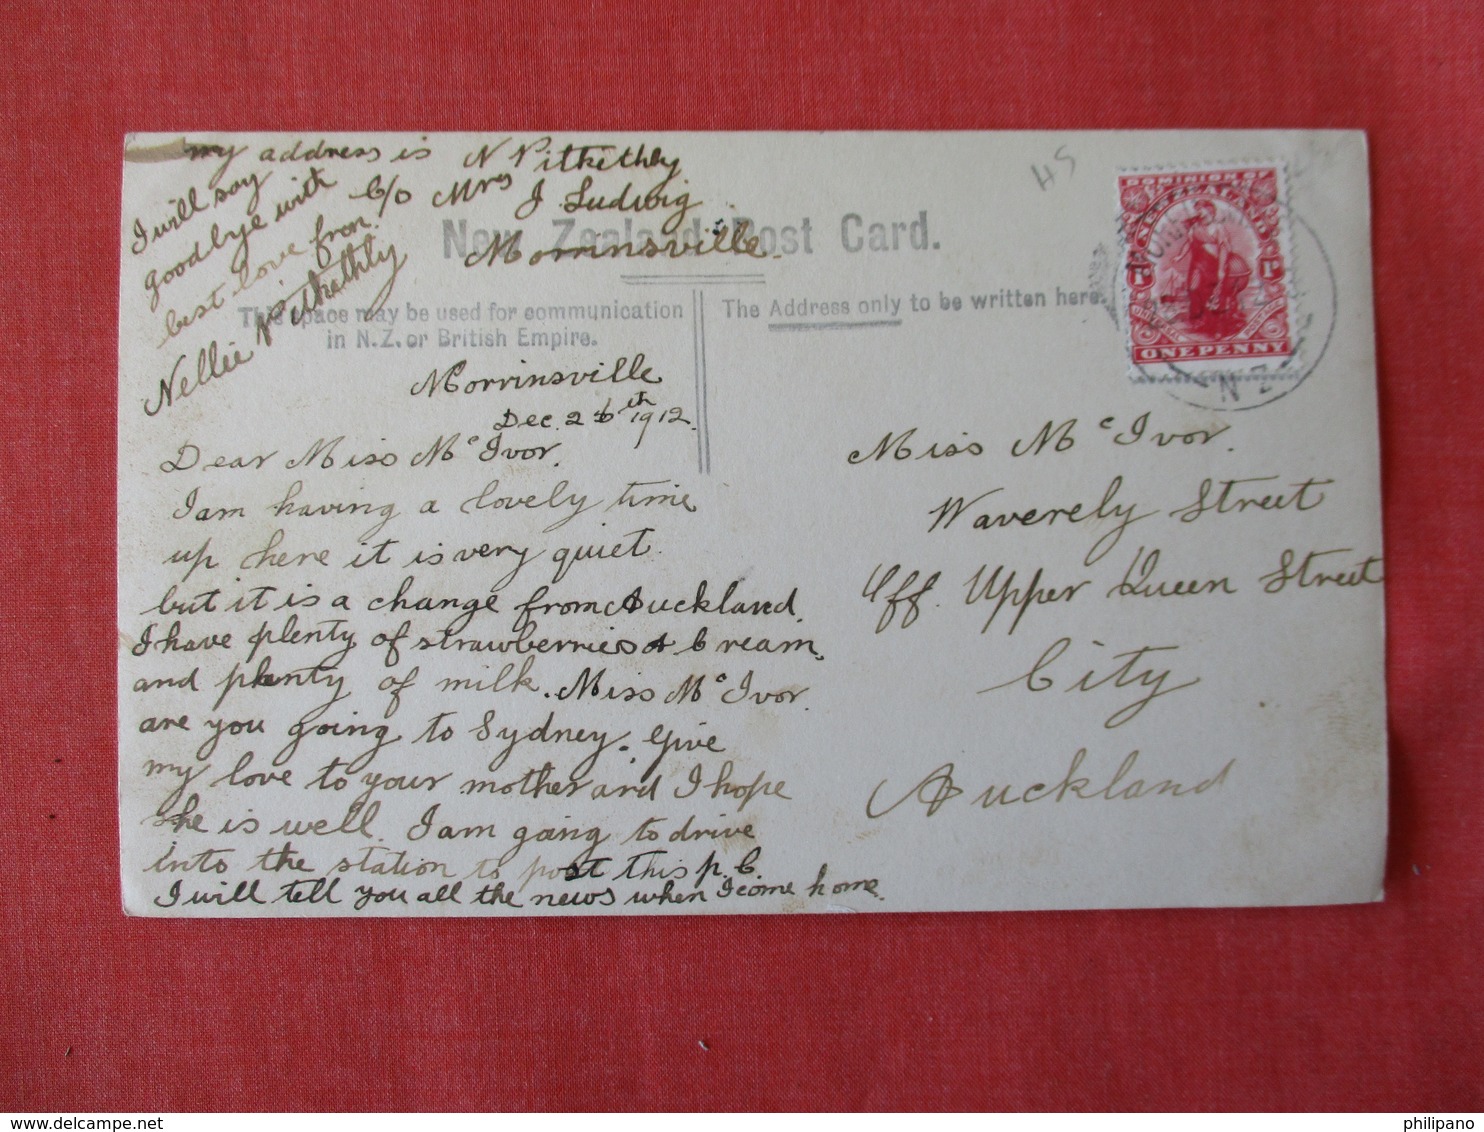 my address is N Pitkethly
C/o Mrs J Ludwig
Morrinsville.
I will say
goodbye with
best love from
Nellie Pitkethly
New Zealand Post Card.
This space may be used for communication
in N.Z. or British Empire.
The Address only to be written here.
Morrinsville
Dec. 26th 1912.
Dear Miss McIvor.
I am having a lovely time
up here it is very quiet.
but it is a change from Auckland.
I have plenty of strawberries & Cream,
and plenty of milk. Miss McIvor.
are you going to Sydney. Give
my love to your mother and I hope
she is well. I am going to drive
into the station to post this p.C.
I will tell you all the news when I come home.
45
DOMINION OF
NEW ZEALAND
1D 1D
ONE PENNY
N Z
Miss McIvor.
Waverely Street
Off. Upper Queen Street
City
Auckland
delcampe.net
philipano